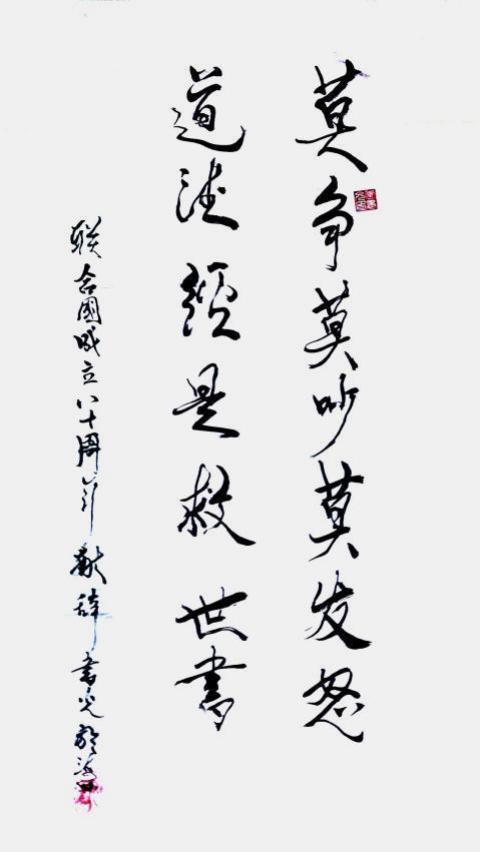 莫争莫吵莫发怒
道德經是救世書
联合國成立八十周年献辞 書光